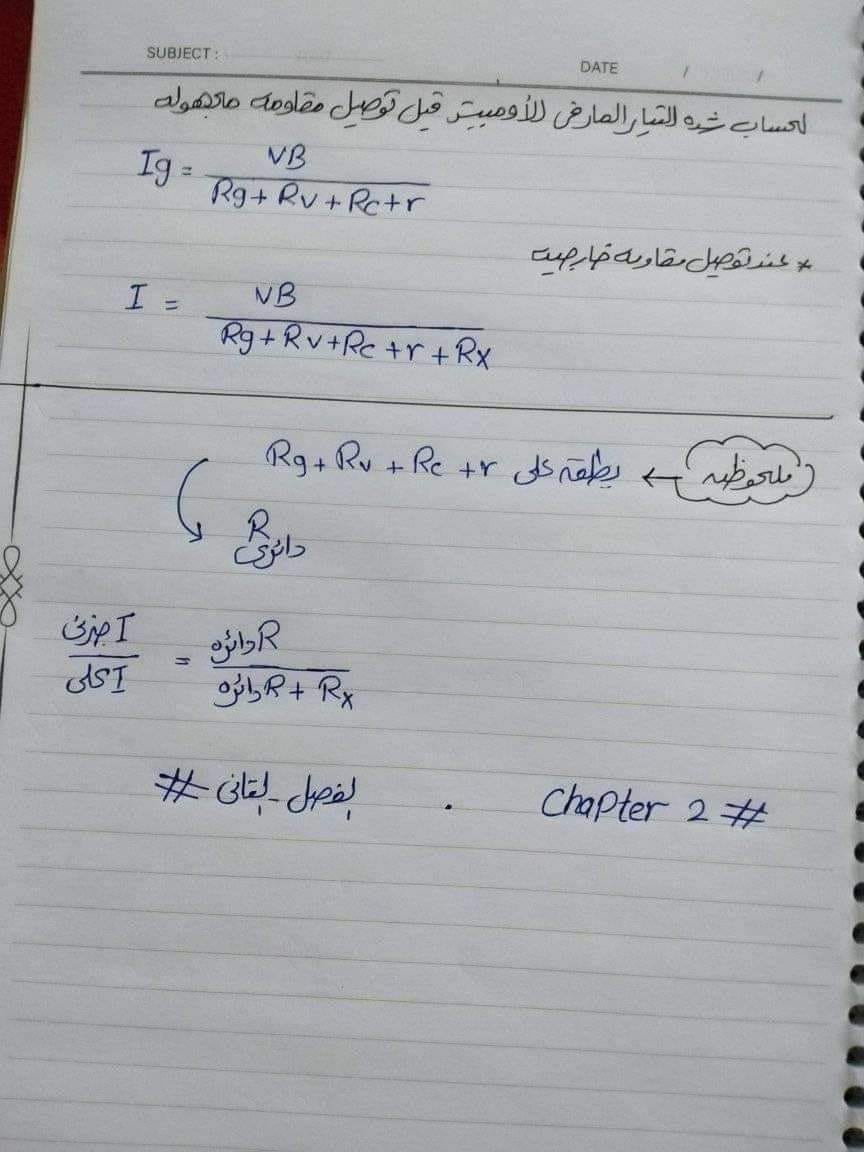 SUBJECT :
DATE / /
لحساب شده التيار المار في الأوميتر قبل توصيل مقاومه مجهوله
Ig = VB / Rg + Rv + Rc + r
* عند توصيل مقاومه خارجيه
I = VB / Rg + Rv + Rc + r + Rx
ملحوظه ← يطلق على Rg + Rv + Rc + r
R دائرى
I جزئى / I كلى = R دائره / R دائره + Rx
# Chapter 2 . الفصل الثانى #